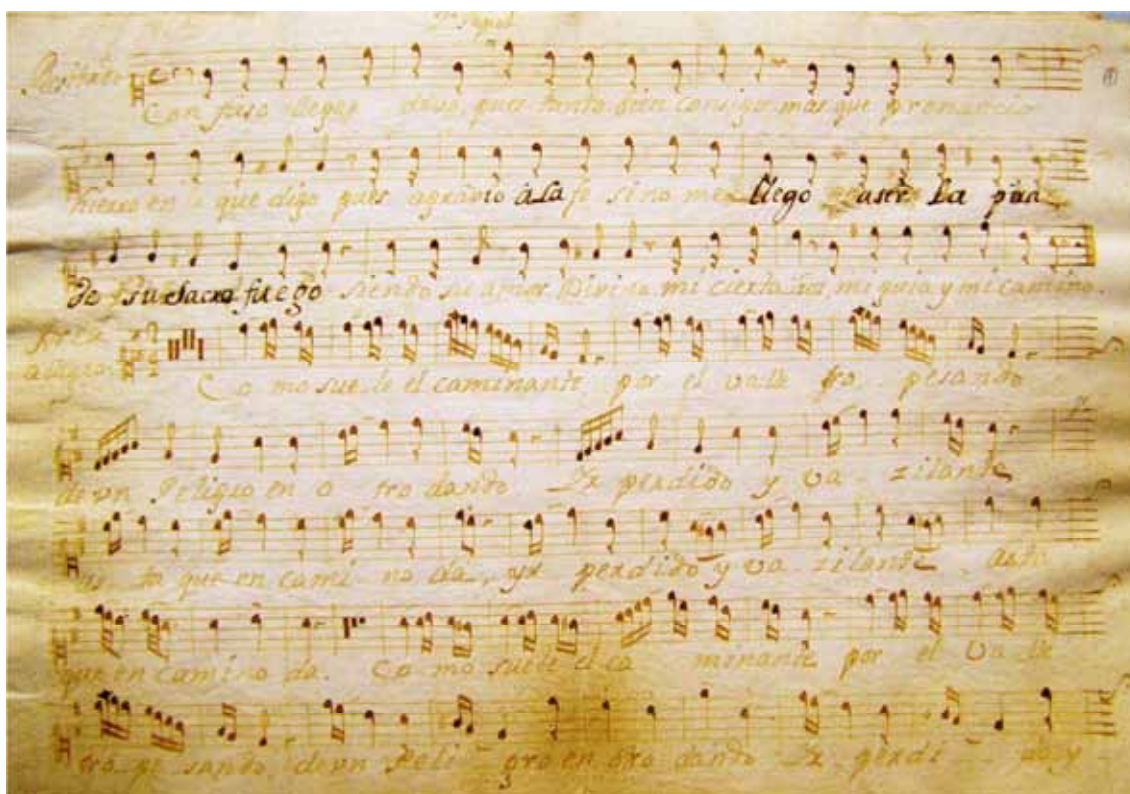 Recitado
Con fuso llego a Dios, pues tanto bien consigo, mas que pronuncio
hierro en que digo pues agravio à la fe sino me llego la pura
de su sacro fuego siendo su amor Divino mi cierta luz, mi guia y mi camino.
Area
allegro
Co mo sue-le el caminante por el valle tro pesando
de un Peligro en o tro dando Ir perdido y va-zilante
que en cami no da, yr perdido y va zilante asta
que en camino da. Co mo suele el ca minante por el Va lle
tro-pe sando de un Peli gro en otro dando Ir perdi do y